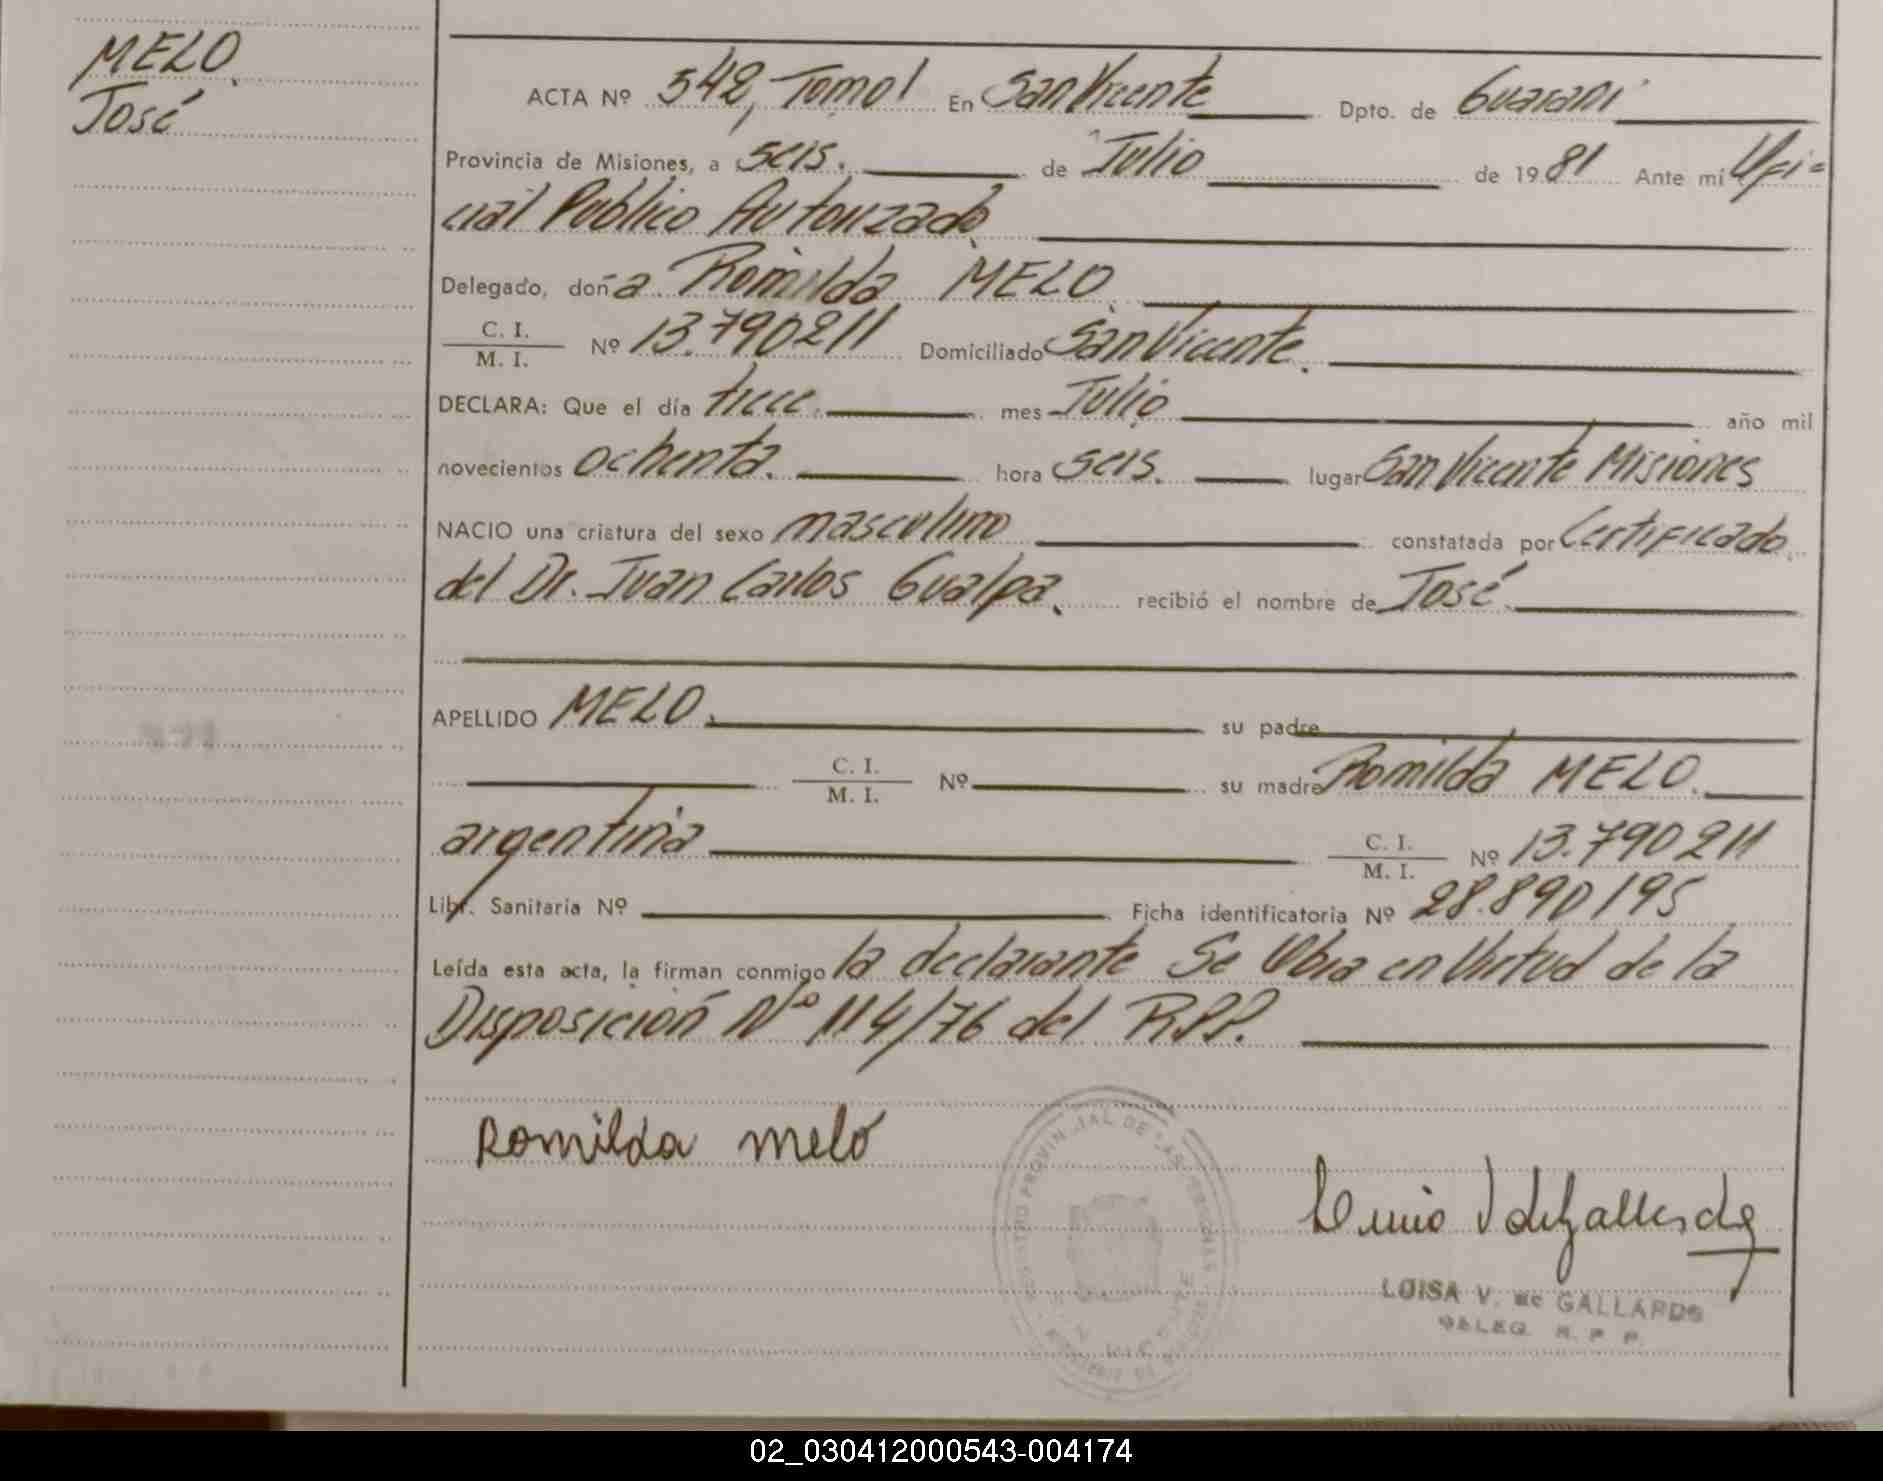 MELO
José
ACTA Nº 542, Tomo I En San Vicente Dpto. de Guaraní
Provincia de Misiones, a seis. de Julio de 1981 Ante mí Ofi=
cial Público Autorizado.
Delegado, doña Romilda MELO
C. I.
M. I. Nº 13.790211 Domiciliado San Vicente.
DECLARA: Que el día trece. mes Julio año mil
novecientos ochenta. hora seis. lugar San Vicente Misiones
NACIO una criatura del sexo masculino constatada por Certificado
del Dr. Juan Carlos Gualpa. recibió el nombre de José.
APELLIDO MELO. su padre
C. I.
M. I. Nº su madre Romilda MELO.
argentina C. I.
M. I. Nº 13.790211
Libr. Sanitaria Nº Ficha identificatoria Nº 28.890195
Leída esta acta, la firman conmigo la declarante Se Obra en Virtud de la
Disposición Nº 114/76 del R.P.P.
Romilda melo
REGISTRO PROVINCIAL DE LAS PERSONAS
LUISA V. de GALLARDO
DELEG. R. P. P.
02_030412000543-004174